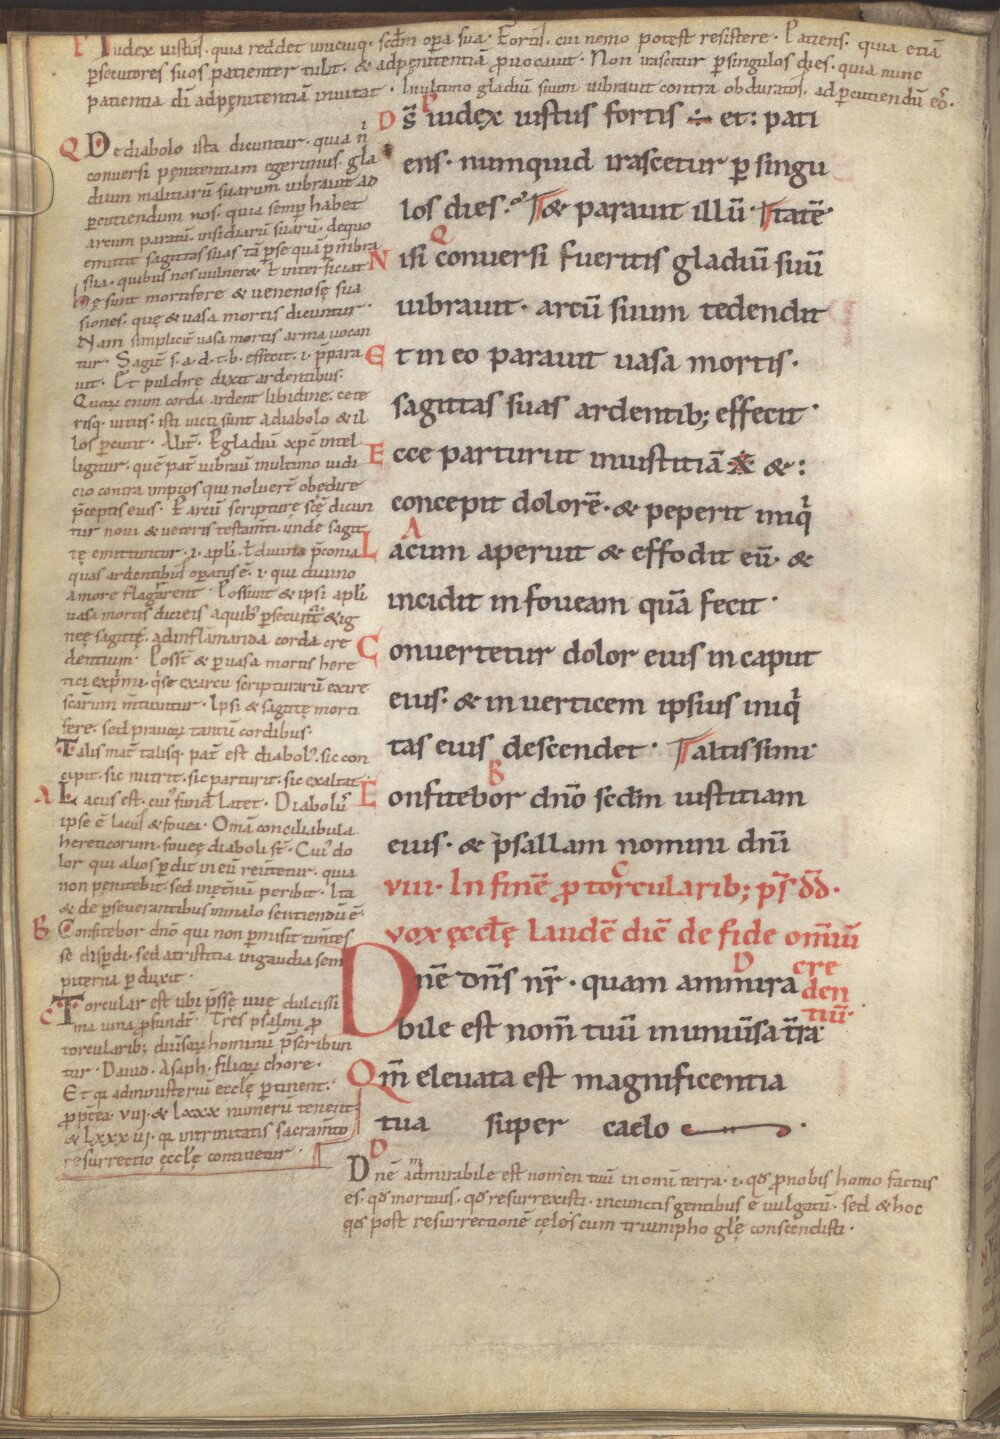 P Iudex iustus. quia reddet unicuiq. scdm opera sua. Fortis. cui nemo potest resistere. Patiens. quia etiā
psecutores suos patienter tulit. & adpęnitentiā puocauit. Non irascetur psingulos dies. quia nunc
patientia dī adpęnitentiā inuitat. In ultimo gladiū suum uibrauit contra obduratos. ad pcutiendū eos.
Q De diabolo ista dicuntur. quia n̄
conuersi pęnitentiam egerimus. gla
dium malitiarū suarum uibrauit ad
pcutiendum nos. quia semp habet
arcum paratū. insidiarū suarū. dequo
emittit sagittas suas tā pse quā pmēbra
sua. quibus nos uulneret ł interficiat
Hę sunt mortifere & uenenosę sua
siones. quę & uasa mortis dicuntur.
Nam simplicit uasa mortis arma uocan
tur. Sagitt. s. a. d. t. b. effecit. i. ppara
uit. Et pulchrę dixit ardentibus.
Quorum enim corda ardent libidine. cete
risq. uitiis. isti uicti sunt a diabolo & il
los pcutit. Alit. P gladiū xpc intel
ligitur. quē pat uibrauit in ultimo iudi
cio contra impios qui noluert obedire
pceptis eius. P arcū scripturę scę dicun
tur noui & ueteris testamti. unde sagit
tę emittuntur. i. apli. ł diuina pconia
quas ardentibus opatus ē. i. qui diuino
amore flagrarent. Possunt & ipsi apli
uasa mortis dici eis a quibus psecunt & ig
neę sagittę. ad inflāmanda corda cre
dentium. Posst & p uasa mortis here
tici exprimi. qi se ex arcu scripturarū exire
scarum mtiuntur. Ipsi & sagittę morti
fere. sed prauorum tantū cordibus.
Talis mat talisq. pat est diabolus. sic con
cipit. sic nutrit. sic parturit. sic exaltat.
A Lacus est. cuius fund latet. Diabolus
ipse ē lacus & fouea. Omā conciliabula
hereticorum. foueę diaboli st. Cuius do
lor qui alios pdit in eū reuitetur. quia
non pęnitebit. sed inętnū peribit. Ita
& de pseuerantibus in malo sentiendū ē.
B Confitebor dno qui non pmisit timtes
se dispdi. sed a tristitia in gaudia sem
piterna pduxit.
C Torcular est ubi pssę uuę dulcissi
ma uina pfundt. Tres psalmi p
torcularib; diuisorum hominū pscribun
tur. Dauid. Asaph. filiorum chore.
Et qi ad misterium eccłę ptinent.
pptea. viij. & lxxx numerū tenent
& lxxx iij. qi in trinitatis sacramto
resurrectio ęccłę continetur.
Ds iudex iustus fortis ÷ et: pati
ens. numquid irascetur p singu
los dies. & parauit illū. tatē
Nisi conuersi fueritis gladiū suū
uibrauit. arcū suum tedendit
Et in eo parauit uasa mortis.
sagittas suas ardentib; effecit.
Ecce parturiit iniustitiā & :
concepit dolorē. & peperit iniq
Lacum aperuit & effodit eū. &
incidit in foueam quā fecit.
Conuertetur dolor eius in caput
eius. & in uerticem ipsius iniq
tas eius descendet. altissimi
Confitebor dno scdm iustitiam
eius. & psallam nomini dni
viii. In finē p torcularib; ps dd.
vox ęccłę laudē dic de fide omniū
cre
den
tiū.
Dne dns nr. quam ammira
bile est nom tuū in uniūsa tra.
Qm eleuata est magnificentia
tua super caelo
Dne admirabile est nomen tuū in omi terra. i. qs pnobis homo factus
es. qs mortuus. qs resurrexisti. in cunctis gentibus ē uulgatū. sed & hoc
qs post resurrectionē cęlos cum triumpho głę conscendisti.